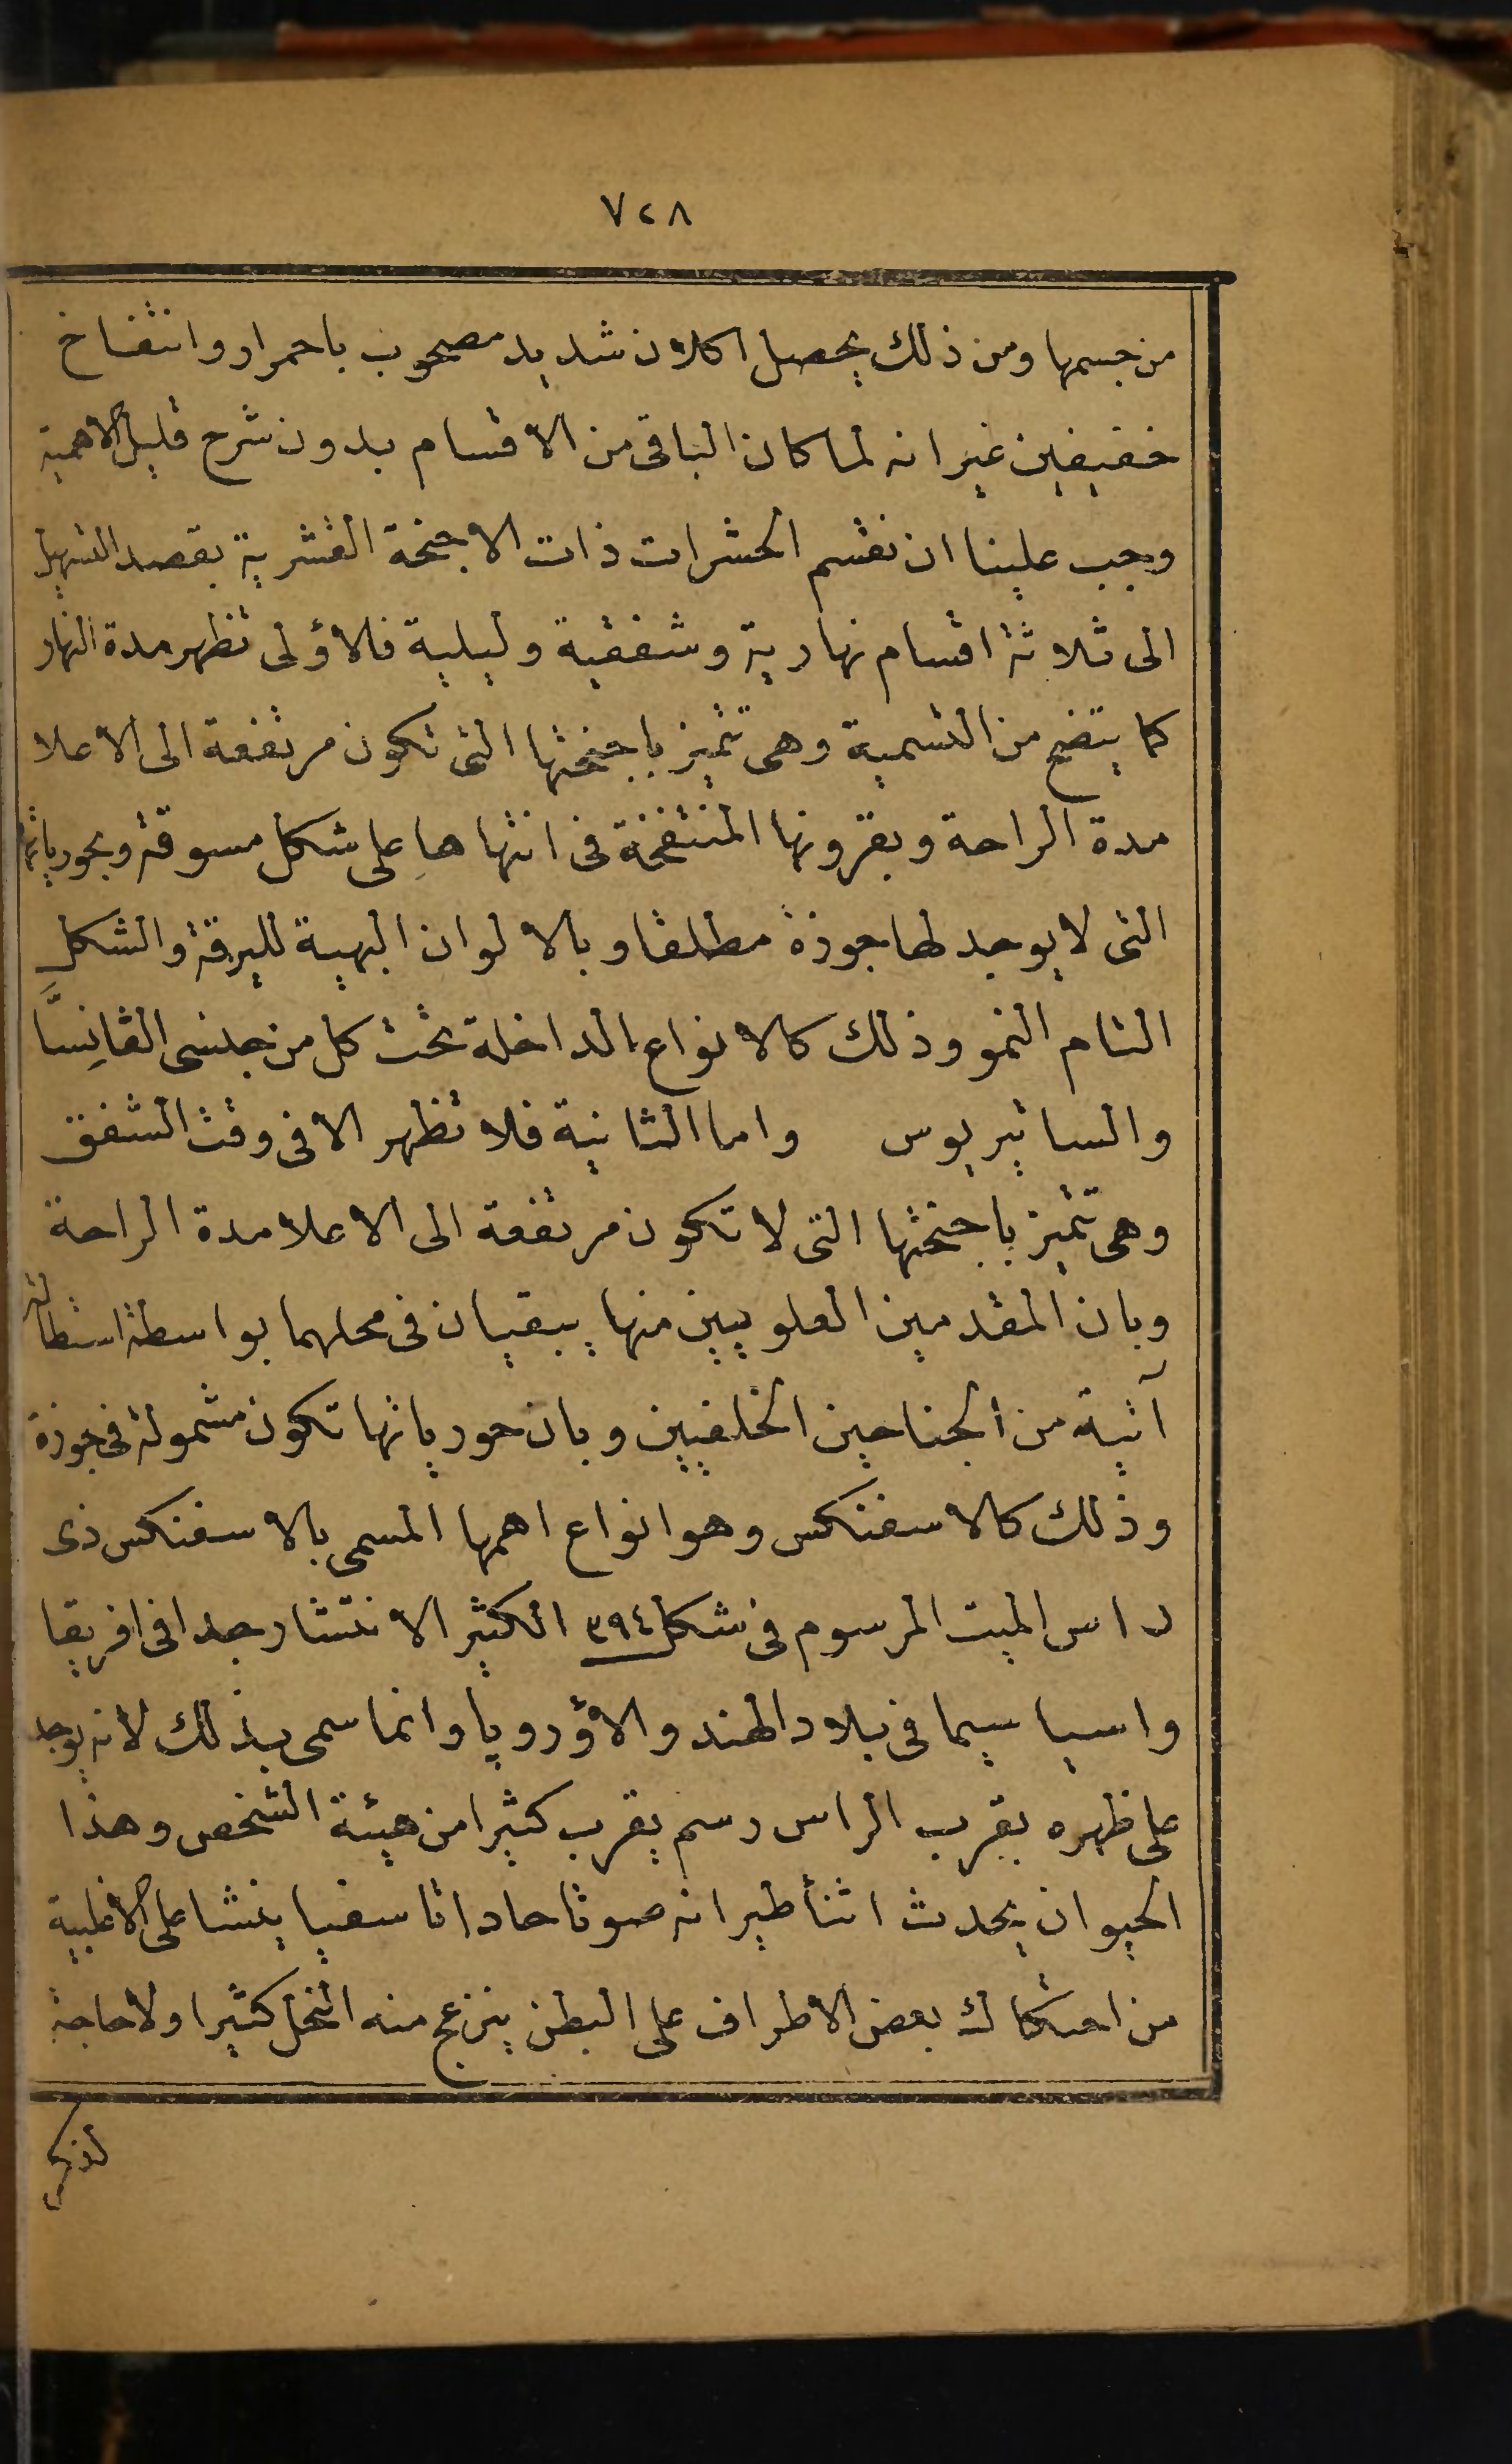 ٧٢٨
من جسمها ومن ذلك يحصل اكلان شديد مصحوب باحمرار وانتفاخ
خفيفين غير انه لما كان الباقى من الاقسام بدون شرح قليل الاهمية
وجب علينا ان نقسم الحشرات ذات الاجنحة القشرية بقصد التسهيل
الى ثلاثة اقسام نهارية وشفقية وليلية فالاؤلى تظهر مدة النهار
كما يتضح من التسمية وهى تتميز باجنحتها التى تكون مرتفعة الى الاعلا
مدة الراحة وبقرونها المنتفخة فى انتهاها على شكل مسوقة وبحورياتها
التى لا يوجد لها جوزة مطلقا وبالالوان البهية لليرقة والشكل
التام النمو وذلك كالانواع الداخلة تحت كل من جنسى الڤانِسَّا
والساتيريوس واما الثانية فلا تظهر الا فى وقت الشفق
وهى تتميز باجنحتها التى لا تكون مرتفعة الى الاعلا مدة الراحة
وبان المقدمين العلويين منها يبقيان فى محلهما بواسطة استطالة
آتية من الجناحين الخلفيين وبان حورياتها تكون مشمولة فى جوزة
وذلك كالاسفنكس وهو انواع اهمها المسمى بالاسفنكس ذى
راس الميت المرسوم فى شكل ٣٩٤ الكثير الانتشار جدا فى افريقا
واسيا سيما فى بلاد الهند والاؤروپا وانما سمى بذلك لانه يوجد
على ظهره بقرب الراس رسم يقرب كثيرا من هيئة الشخص وهذا
الحيوان يحدث اثنأ طيرانه صوتا حادا تاسفيا ينشا على الاغلبية
من احتكاك بعض الاطراف على البطن ينزعج منه النحل كثيرا ولاحاجة
لذكر